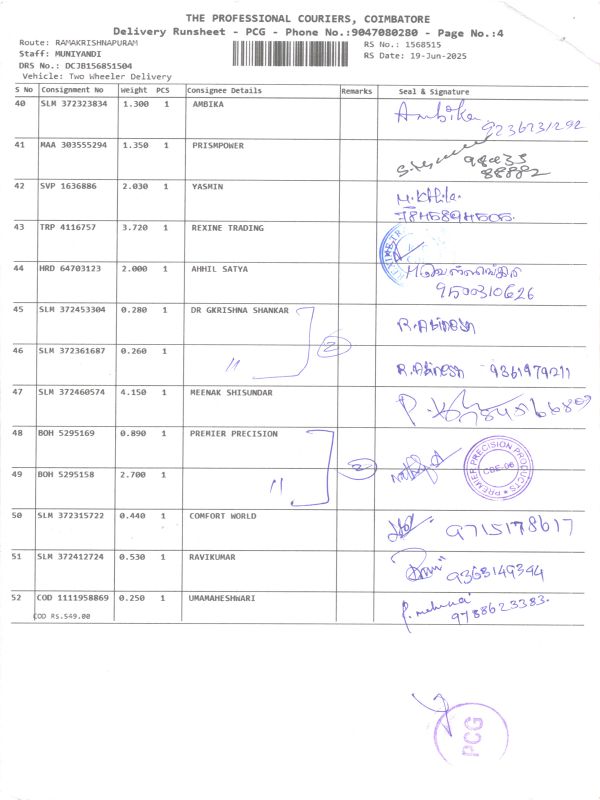 THE PROFESSIONAL COURIERS, COIMBATORE
Delivery Runsheet - PCG - Phone No.:9047080280 - Page No.:4
Route: RAMAKRISHNAPURAM
RS No.: 1568515
Staff: MUNIYANDI
RS Date: 19-Jun-2025
DRS No.: DCJB156851504
Vehicle: Two Wheeler Delivery
S No Consignment No Weight PCS Consignee Details Remarks Seal & Signature
40 SLM 372323834 1.300 1 AMBIKA Ambika
9236231292
41 MAA 303555294 1.350 1 PRISMPOWER
98433
88882
42 SVP 1636886 2.030 1 YASMIN
43 TRP 4116757 3.720 1 REXINE TRADING
44 HRD 64703123 2.000 1 AHHIL SATYA
9500310626
45 SLM 372453304 0.280 1 DR GKRISHNA SHANKAR R. Abinesh
2
46 SLM 372361687 0.260 1 " R. Abinesh 9361979211
47 SLM 372460574 4.150 1 MEENAK SHISUNDAR
48 BOH 5295169 0.890 1 PREMIER PRECISION
PREMIER PRECISION PRODUCTS
CBE-06
2
49 BOH 5295158 2.700 1 "
50 SLM 372315722 0.440 1 COMFORT WORLD 9715178617
51 SLM 372412724 0.530 1 RAVIKUMAR 9363149344
52 COD 1111958869 0.250 1 UMAMAHESHWARI
9788623383.
COD RS.549.00
PCG